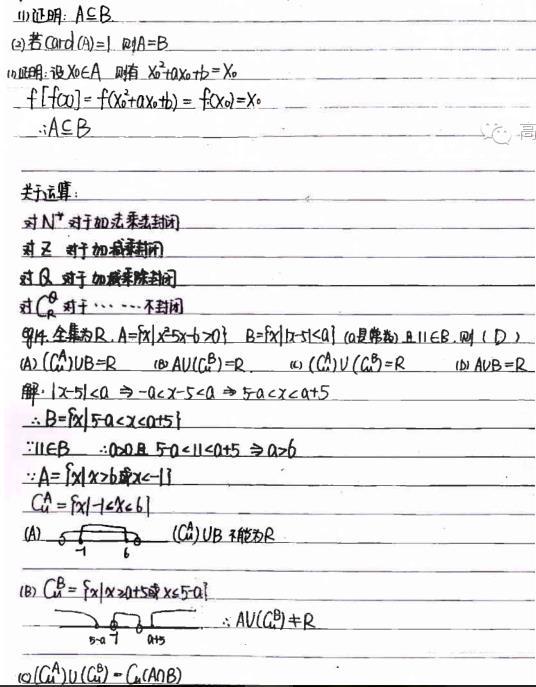 (1)证明: A⊆B.
(2)若Card(A)=1 则A=B
(1)证明:设x₀∈A 则有 x₀²+ax₀+b=x₀
f[f(x)]=f(x₀²+ax₀+b)=f(x₀)=x₀
∴A⊆B
高
关于运算:
对N⁺对于加法乘法封闭
对Z 对于加减乘封闭
对Q 对于加减乘除封闭
对C_R^Q对于……不封闭
例14.全集为R, A={x|x²-5x-6>0} B={x||x-5|<a} (a是常数)且11∈B,则(D)
(A)(C_u^A)∪B=R (B)A∪(C_u^B)=R (C)(C_u^A)∪(C_u^B)=R (D)A∪B=R
解:|x-5|<a ⇒-a<x-5<a ⇒ 5-a<x<a+5
∴B={x|5-a<x<a+5}
∵11∈B ∴a>0且 5-a<11<a+5 ⇒a>6
∵A={x|x>6或x<-1}
C_u^A={x|-1≤x≤6}
(A) -1 6 (C_u^A)∪B 不能为R
(B) C_u^B={x|x≥a+5或x≤5-a}
5-a -1 a+5 ∴A∪(C_u^B)≠R
(C)(C_u^A)∪(C_u^B)=C_u(A∩B)